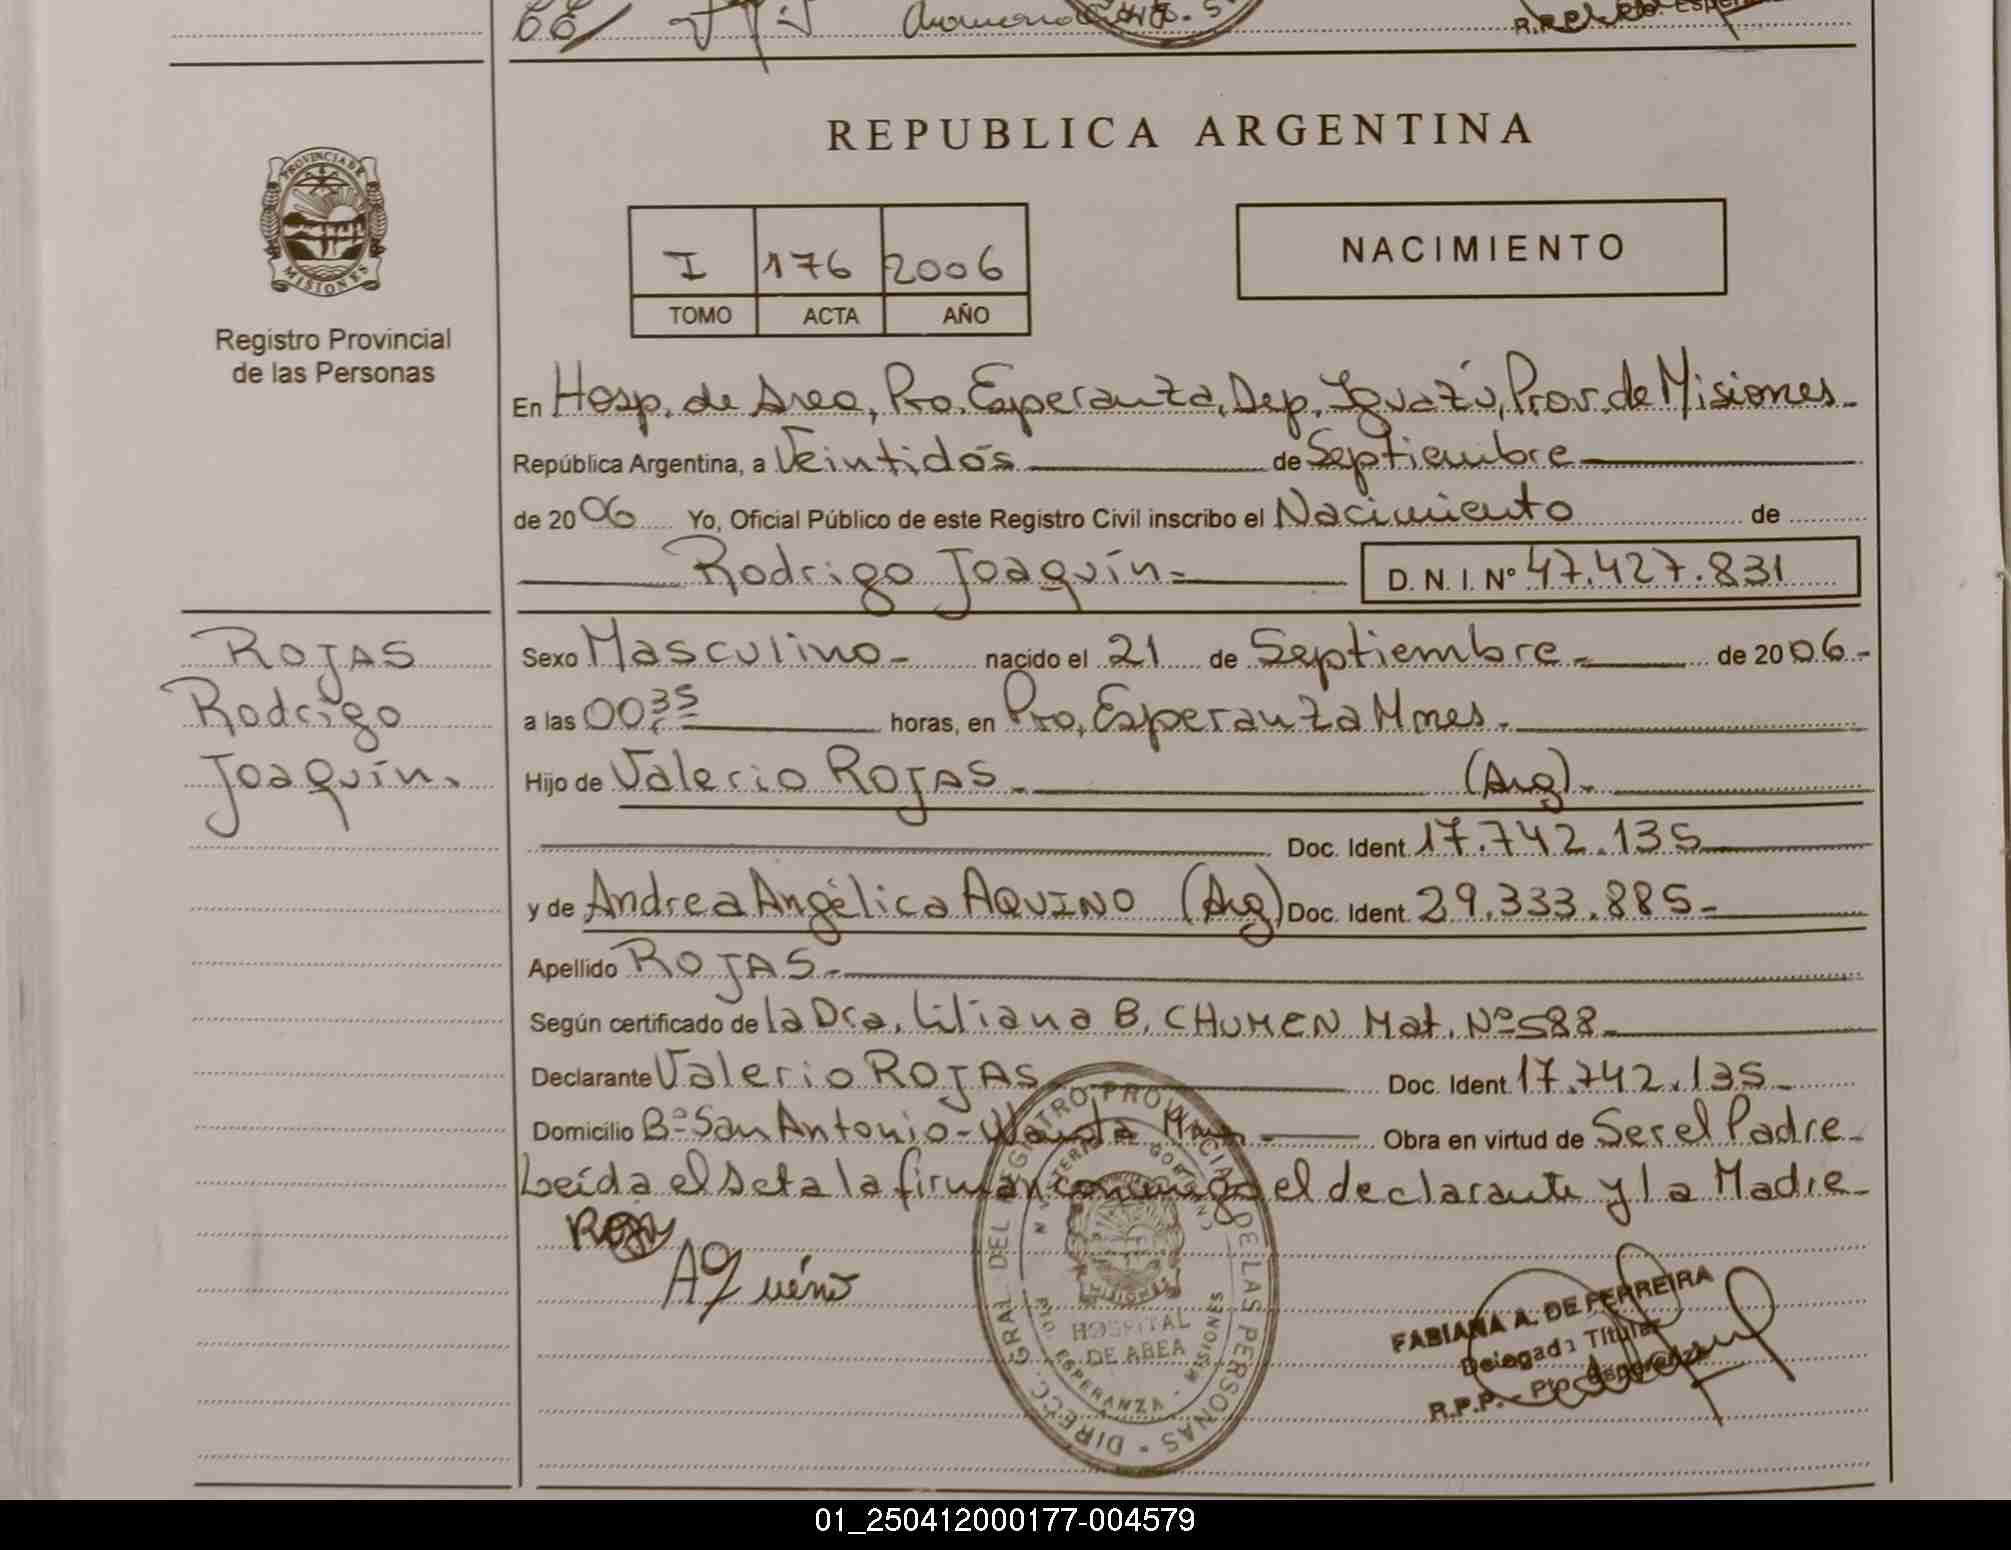 REPUBLICA ARGENTINA
PROVINCIA DE
MISIONES
Registro Provincial
de las Personas
I 176 2006
TOMO ACTA AÑO
NACIMIENTO
En Hosp. de Area, Pto. Esperanza, Dep. Iguazú, Prov. de Misiones
República Argentina, a Veintidós de Septiembre
de 2006 Yo, Oficial Público de este Registro Civil inscribo el Nacimiento de
Rodrigo Joaquín.- D. N. I. Nº 47.427.831
ROJAS
Rodrigo
Joaquín.
Sexo Masculino - nacido el 21 de Septiembre - de 2006.-
a las 00,35 horas, en Pto. Esperanza Mnes.
Hijo de Valerio ROJAS.- (Arg).-
Doc. Ident. 17.742.135
y de Andrea Angélica AQUINO (Arg) Doc. Ident. 29.333.885-
Apellido ROJAS.-
Según certificado de la Dra. Liliana B. CHUMEN Mat. Nº 588-
Declarante Valerio ROJAS Doc. Ident. 17.742.135-
Domicilio Bº San Antonio - Wanda Mnes - Obra en virtud de Ser el Padre-
Leída el Acta la firman conmigo el declarante y la Madre-
Rojas
Aquino
DIRECC. GRAL DEL REGISTRO PROVINCIAL DE LAS PERSONAS
MISIONES
HOSPITAL
DE AREA
PTO. ESPERANZA - MISIONES
FABIANA A. DE FERREIRA
Delegada Titular
R.P.P. - Pto. Esperanza
01_250412000177-004579